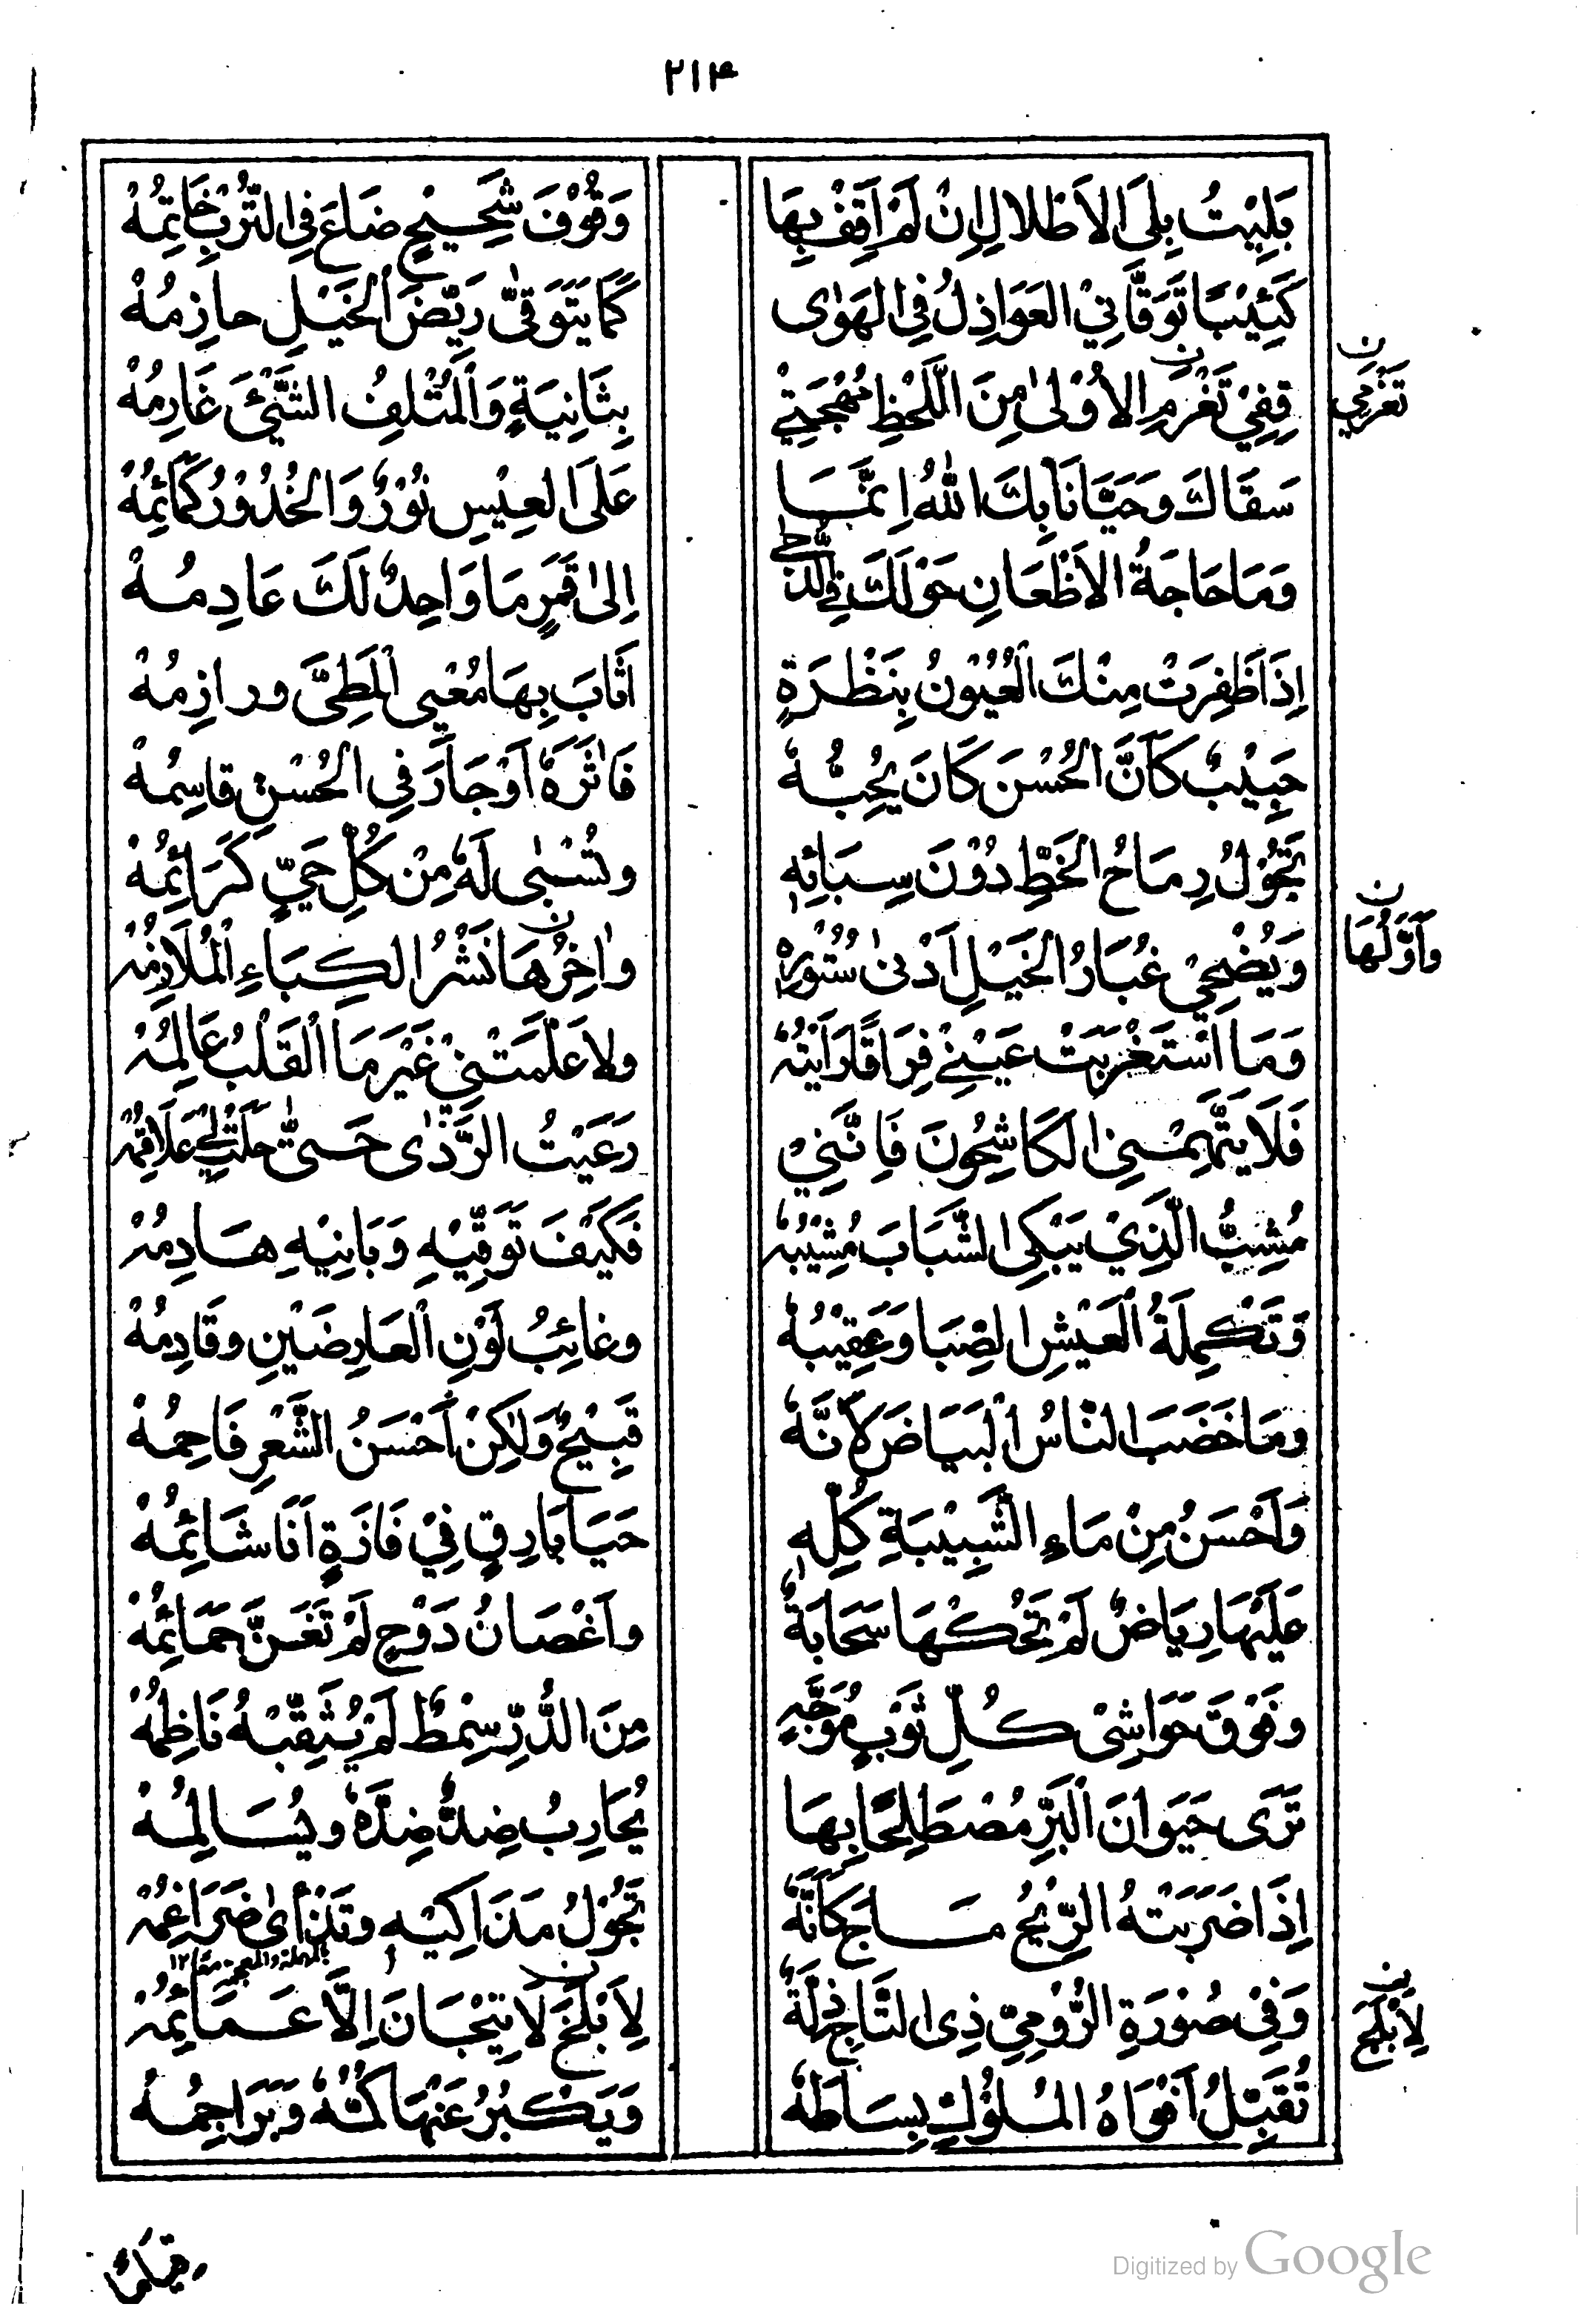 ٢١٤
بَلِيْتُ بِلَى الاَطْلالِ اِنْ لَمْ اَقِفْ بِهَا وَقُوْفَ شَحِيْحٍ ضَاعَ فِي التُّرْبِ خَاتِمُهْ
كَئِيْبًا تَوَقَّاتِيْ العَوَاذِلُ فِي الهَوٰى كَمَا يَتَوَقّٰى رَيِّضَ الْخَيْلِ حازِمُهْ
قِفِيْ تَغْرَمِ الاُوْلىٰ مِنَ اللَّحْظِ مُهْجَتِيْ بِثَانِيَةٍ وَالْمُتْلِفُ الشَّيْئَ غَارِمُهْ
ن تَغْرَمِي
سَقَاكَ وَحَيَّانَا بِكَ اللّٰهُ اِنَّمَا عَلَى العِيْسِ نُوْرٌ وَالخُدُوْرُ كَمَائِمُهْ
وَمَا حَاجَةُ الاَظْعَانِ حَوْلَكَ فِي الدُّجٰى اِلىٰ قَمَرٍ مَا وَاحِدٌ لَكَ عَادِمُهْ
اِذَا ظَفِرَتْ مِنْكَ الْعُيُوْنُ بِنَظْرَةٍ اَثَابَ بِهَا مُعْيِي الْمَطِيِّ ورازِمُهْ
حَبِيْبٌ كَاَنَّ الْحُسْنَ كَانَ يُحِبُّهٗ فَاٰثَرَهٗ اَوْجَارَ فِي الْحُسْنِ قاسِمُهْ
تَحُوْلُ رِمَاحُ الخَطِّ دُوْنَ سِبَائِهٖ وتُسْبٰى لَهٗ مِنْ كُلِّ حَيٍّ كَرَائِمُهْ
وَيُضْحِيْ غُبَارُ الْخَيْلِ اَدْنىٰ سُتُوْرِهٖ واٰخِرُهَا نَشْرُ الكِبَاءِ الْمُلَازِمُهْ
ن وَاَوَّلُهَا
وَمَا اسْتَغْرَبَتْ عَيْنِيْ فِرَاقًا رَاَيْتُهٗ ولاَ عَلَّمَتْنِيْ غَيْرَ مَا الْقَلْبُ عَالِمُهْ
فَلَا يَتَّهِمْنِي الكَاشِحُونَ فَاِنَّنِيْ رَعَيْتُ الرَّدٰى حَتّٰى حَلَتْ لِيْ عَلَاقِمُهْ
مُشِبُّ الَّذِيْ يَبْكِي الشَّبَابَ مُشِيْبُهٗ فَكَيْفَ تَوَقِّيْهِ وَبَانِيْهِ هَادِمُهْ
وَتَكْمِلَةُ الْعَيْشِ الصِّبَا وَعَقِيْبُهٗ وغائِبُ لَوْنِ الْعَارِضَيْنِ وقَادِمُهْ
ومَا خَضَبَ النّاسُ الْبَيَاضَ لِاَنَّهٗ قَبِيْحٌ وَلٰكِنْ اَحْسَنُ الشَّعْرِ فَاحِمُهْ
وَاَحْسَنُ مِنْ مَاءِ الشَّبِيْبَةِ كُلِّهٖ حَيَا بَارِقٍ فِيْ فَازَةٍ اَنَا شَائِمُهْ
عَلَيْهَا رِيَاضٌ لَمْ تَحُكْهَا سَحَابَةٌ واَغْصَانُ دَوْحٍ لَمْ تَغَنَّ حَمَائِمُهْ
وفَوْقَ حَوَاشِيْ كُلِّ ثَوْبٍ مُوَجَّهٍ مِنَ الدُّرِّ سِمْطٌ لَمْ يُثَقِّبْهُ نَاظِمُهْ
تَرٰى حَيَوانَ الْبَرِّ مُصْطَلِحًا بِهَا يُحَارِبُ ضِدٌّ ضِدَّهٗ ويُسَالِمُهْ
اِذَا ضَرَبَتْهُ الرِّيْحُ مَاجَ كَاَنَّهٗ تَجُوْلُ مَذَاكِيْهِ وتَدْأٰى ضَرَاغِمُهْ
بالمهملة والمعجمة معًا ١٢
وَفِيْ صُوْرَةِ الرُّوْمِيِّ ذِي التَّاجِ ذِلَّةٌ لِاَبْلَخَ لَا تِيْجَانَ اِلَّا عَمَائِمُهْ
ن لِاَبْلَجَ
تُقَبِّلُ اَفْوَاهُ المُلُوْكِ بِسَاطَهٗ وَيَكْبُرُ عَنْهَا كُمُّهٗ وَبَرَاجِمُهْ
قِيَامًا
Digitized by Google